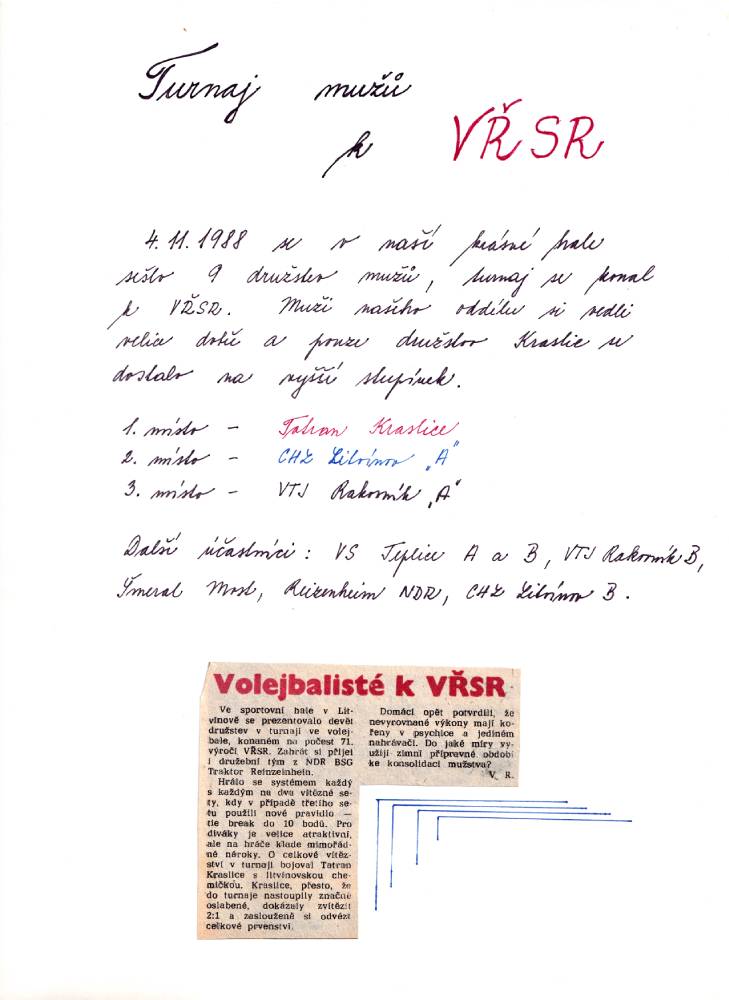 Turnaj mužů
k VŘSR
4.11.1988 se v naší krásné hale
sešlo 9 družstev mužů, turnaj se konal
k VŘSR. Muži našeho oddílu si vedli
velice dobře a pouze družstvo Kraslic se
dostalo na vyšší stupínek.
1. místo - Tatran Kraslice
2. místo - CHZ Litvínov „A"
3. místo - VTJ Rakovník „A"
Další účastníci: VS Teplice A a B, VTJ Rakovník B,
Šmeral Most, Reizenheim NDR, CHZ Litvínov B.
Volejbalisté k VŘSR
Ve sportovní hale v Lit-
vínově se prezentovalo devět
družstev v turnaji ve volej-
bale, konaném na počest 71.
výročí VŘSR. Zahrát si přijel
i družební tým z NDR BSG
Traktor Reinzeinhein.
Hrálo se systémem každý
s každým na dva vítězné se-
ty, kdy v případě třetího se-
tu použili nové pravidlo —
tie break do 10 bodů. Pro
diváky je velice atraktivní,
ale na hráče klade mimořád-
né nároky. O celkové vítěz-
ství v turnaji bojoval Tatran
Kraslice s litvínovskou che-
mičkou. Kraslice, přesto, že
do turnaje nastoupily značně
oslabené, dokázaly zvítězit
2:1 a zaslouženě si odvézt
celkové prvenství.
Domácí opět potvrdili, že
nevyrovnané výkony mají ko-
řeny v psychice a jediném
nahrávači. Do jaké míry vy-
užijí zimní přípravné období
ke konsolidaci mužstva?
V. R.